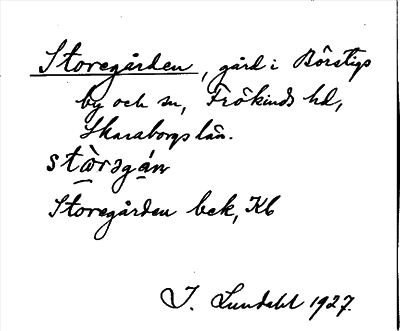 Storegården, gård i Börstigs
by och sn, Frökinds hd,
Skaraborgs län.
stὼrəgán
Storegården bek, Kb
I. Lundahl 1927.